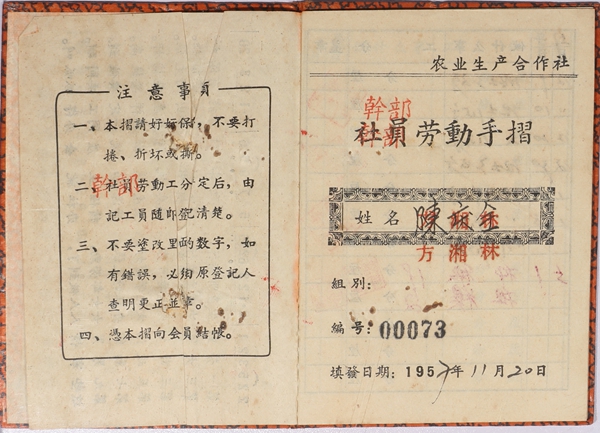 注意事項
一、本摺請好好保㑊，不要打
捲、折坏或撕。
幹部
二、社員勞動工分定后，由
記工員隨即記清楚。
三、不要塗改里的数字，如
有錯誤，必須原登記人
查明更正並章。
四、憑本摺向会員結帳。
农业生产合作社
幹部
社員勞動手摺
姓名 陳
方湘林
組别：
編号：00073
填發日期：1957年11月20日